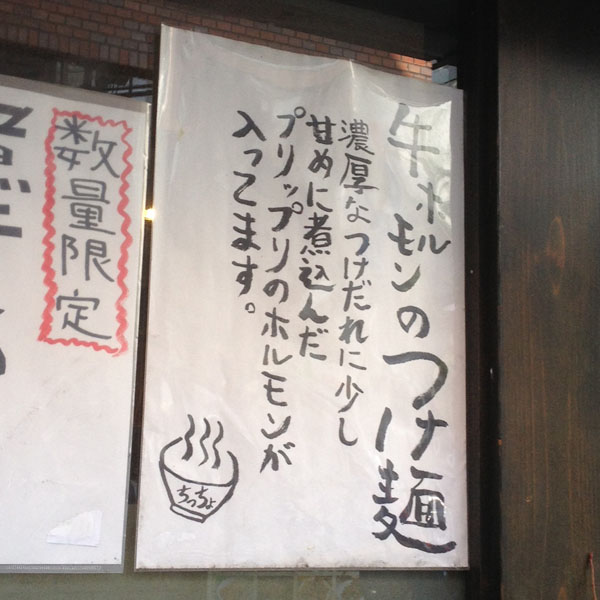 牛ホルモンのつけ麺
濃厚なつけだれに少し
甘めに煮込んだ
プリップリのホルモンが
入ってます。
ちっちょ
数量限定